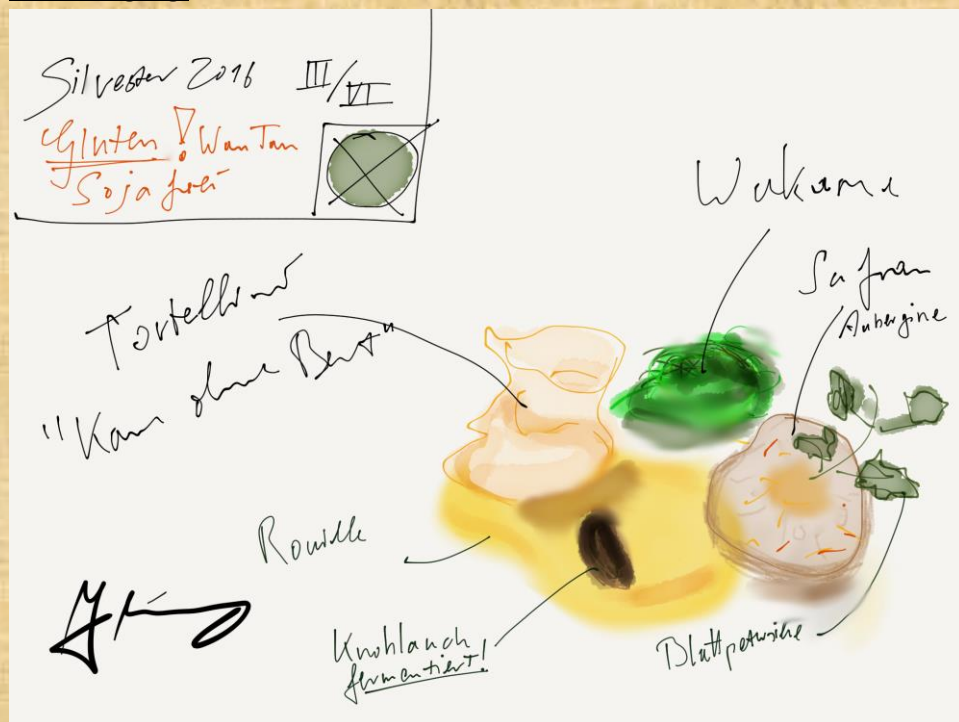 Silvester 2016 III/VI
Gluten! WanTan
Soja frei
Wakame
Safran
Aubergine
Tortellini
"Kam ohne Bart"
Rouille
Knoblauch
fermentiert!
Blattpetersilie